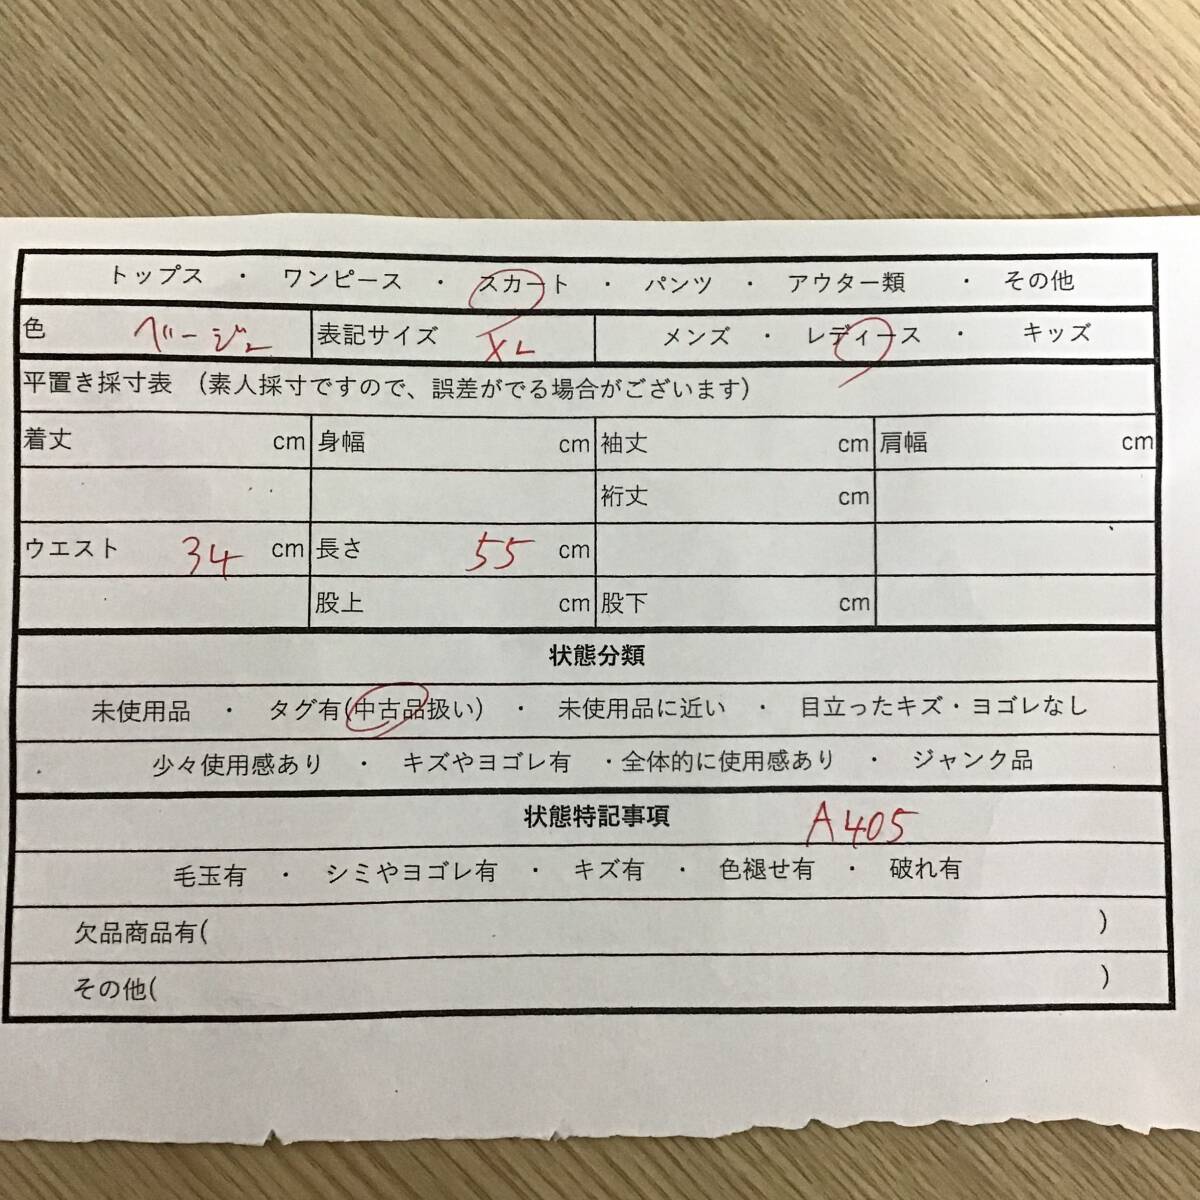 トップス ・ ワンピース ・ スカート ・ パンツ ・ アウター類 ・ その他
色 ベージュ 表記サイズ XL メンズ ・ レディース ・ キッズ
平置き採寸表 （素人採寸ですので、誤差がでる場合がございます）
着丈 cm 身幅 cm 袖丈 cm 肩幅 cm
裄丈 cm
ウエスト 34 cm 長さ 55 cm
股上 cm 股下 cm
状態分類
未使用品 ・ タグ有(中古品扱い) ・ 未使用品に近い ・ 目立ったキズ・ヨゴレなし
少々使用感あり ・ キズやヨゴレ有 ・全体的に使用感あり ・ ジャンク品
状態特記事項 A405
毛玉有 ・ シミやヨゴレ有 ・ キズ有 ・ 色褪せ有 ・ 破れ有
欠品商品有( )
その他( )